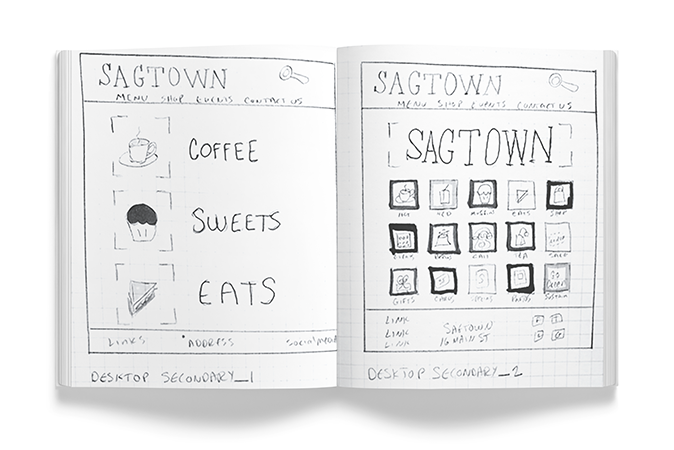 SAGTOWN
MENU SHOP EVENTS CONTACT US
COFFEE
SWEETS
EATS
LINKS *ADDRESS SOCIAL MEDIA
DESKTOP SECONDARY_1
SAGTOWN
MENU SHOP EVENTS CONTACT US
SAGTOWN
HOT ICED EATS SHOP
SALE
GIFTS CARDS PARTY
LINK
LINK
LINK
SAGTOWN
16 MAIN ST
DESKTOP SECONDARY_2